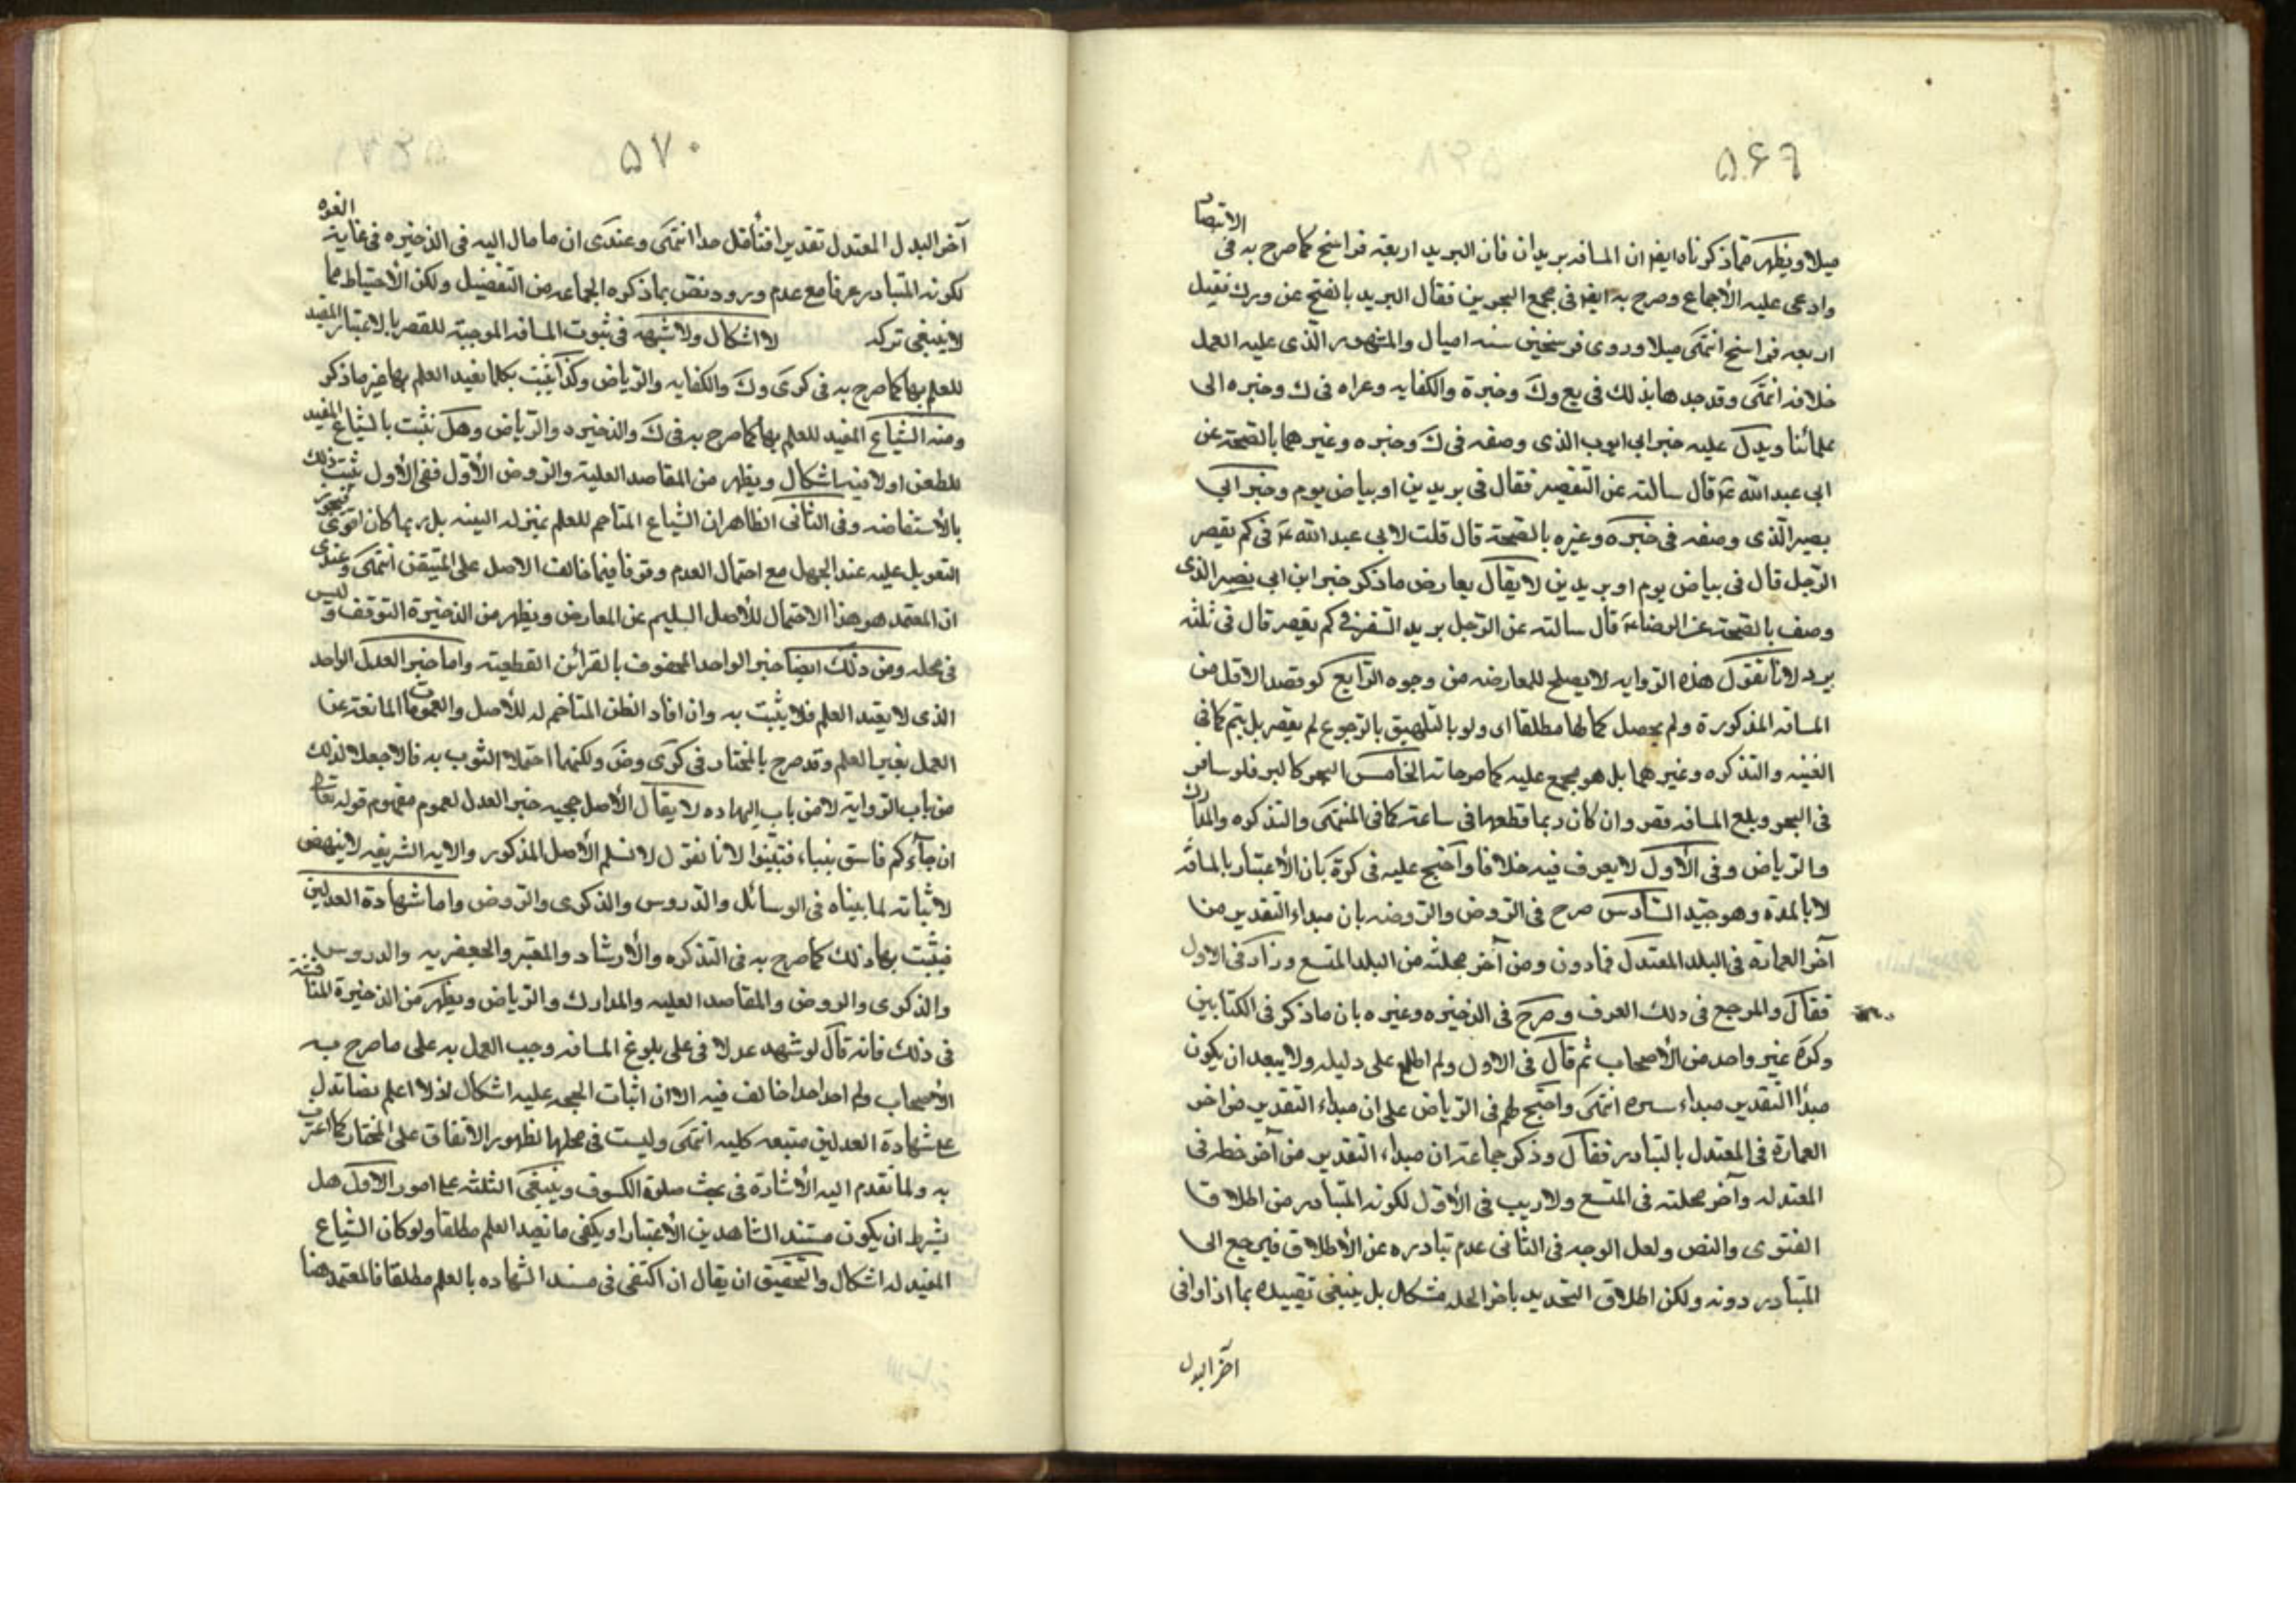 ۵۶۹
ميلا ويظهر مما ذكرناه ايضا ان المسافة بريدان فان البريد اربعة فراسخ كما صرح به فى الانتصار
وادعى عليه الأجماع وصرح به ايضا فى مجمع البحرين فقال البريد بالفتح
اربعة فراسخ انتهى ميلا وروى فرسخين ستة اميال والمشهور الذى عليه العمل
خلافه انتهى وقد حدها بذلك فى يع وك وخيرة والكفايه وعزاه فى ك وخيره الى
علمائنا ويدل عليه خبر ابى ايوب الذى وصفه فى ك وخيره وغيرهما بالصحة عن
ابى عبد الله ع قال سالته عن التقصير فقال فى بريدين او بياض يوم وخبر ابى
بصير الذى وصفه فى خيره وغيره بالصحة قال قلت لابى عبد الله ع فى كم يقصر
الرجل قال فى بياض يوم او بريدين لا يقال يعارض ما ذكر خبر ابن ابى نصر الذى
وصف بالصحة عن الرضا ع قال سالته عن الرجل يريد السفر فى كم يقصر قال فى ثلثة
برد لانا نقول هذه الروايه لا يصلح للمعارضه من وجوه الرابع لو قصد الاقل من
المسافه المذكورة ولم يحصل كمالها مطلقا اى ولو بالتلفيق بالرجوع لم يقصر بل يتم كما فى
الغنيه والتذكره وغيرهما بل هو مجمع عليه كما صرحا به الخامس البحر كالبر فلو سافر
فى البحر وبلغ المسافه قصر وان كان ربما قطعها فى ساعة كما فى المنتهى والتذكره والمدارك
والرياض وفى الأول لا يعرف فيه خلافا واحتج عليه فى كرة بان الأعتبار بالمسافة
لا بالمدة وهو جيد السادس صرح فى الروض والروضه بان مبداء التقدير من
آخر العمارة فى البلد المعتدل فما دون ومن آخر محلته من البلد المتسع وزاد فى الاول
فقال والمرجع فى ذلك العرف وصرح فى الذخيره وغيره بان ما ذكر فى الكتابين
وكره غير واحد من الأصحاب ثم قال فى الاول ولم اطلع على دليله ولا يبعد ان يكون
مبدأ التقدير مبداء سيره انتهى واحتج لهم فى الرياض على ان مبداء التقدير من اخر
العمارة فى المعتدل بالتبادر فقال وذكر جماعة ان مبداء التقدير من آخر خطة فى
المعتدله وآخر محلته فى المتسع ولا ريب فى الأول لكونه المتبادر من اطلاق
الفتوى والنص ولعل الوجه فى الثانى عدم تبادره عن الأطلاق فيرجع الى
المتبادر دونه ولكن اطلاق التحديد باخر المحله مشكل بل ينبغى تقييده بما اذا وافى
آخر البدل
۵۷۰
آخر البدل المعتدل تقديرا فتأمل جدا انتهى وعندى ان ما مال اليه فى الذخيره فى غاية القوه
لكونه المتبادر عرفا مع عدم ورود نص بما ذكره الجماعه من التفصيل ولكن الأحتياط مما
لا ينبغى تركه لا اشكال ولا شبهه فى ثبوت المسافه الموجبة للقصر بالاعتبار المفيد
للعلم بها كما صرح به فى كرى وك والكفايه والرياض وكذا يثبت بكلما يفيد العلم بها غير ما ذكر
ومنه الشياع المفيد للعلم بها كما صرح به فى ك والذخيره والرياض وهل يثبت بالشياع المفيد
للظن او لا فيه اشكال ويظهر من المقاصد العلية والروض الأول ففى الأول يثبت ذلك
بالأستفاضه وفى الثانى الظاهر ان الشياع المتاخم للعلم بمنزلة البينه بل ربما كان اقوى فيجوز
التعويل عليه عند الجهل مع احتمال العدم وقوفا فيما خالف الاصل على المتيقن انتهى وعندى
ان المعتمد هو هذا الاحتمال للأصل السليم عن المعارض ويظهر من الذخيرة التوقف وليس
فى محله ومن ذلك ايضا خبر الواحد المحفوف بالقرائن القطعية واما خبر العدل الواحد
الذى لا يفيد العلم فلا يثبت به وان افاد الظن المتاخم له للأصل والعمومات المانعة عن
العمل بغير العلم وقد صرح بالمختار فى كرى وض ولكنهما احتملا الثبوت به قالا جعلا لذلك
من باب الرواية لا من باب الشهاده لا يقال الأصل حجيه خبر العدل لعموم مفهوم قوله تعالى
ان جاءكم فاسق بنباء فتبينوا لانا نقول لا نسلم الأصل المذكور والايه الشريفه لا ينهض
لاثباته لما بيناه فى الوسائل والدروس والذكرى والروض واما شهادة العدلين
فيثبت بها ذلك كما صرح به فى التذكره والأرشاد والمعتبر والجعفريه والدروس
والذكرى والروض والمقاصد العليه والمدارك والرياض ويظهر من الذخيرة المناقشة
فى ذلك فانه قال لو شهد عدلا فى على بلوغ المسافه وجب العمل به على ما صرح به
الأصحاب ولم اجد احدا خالف فيه الا ان اثبات الحجى عليه اشكال اذ لا اعلم نصا تدل
على شهادة العدلين متبعه كليه انتهى وليست فى محلها لظهور الأتفاق على المختار كما اعترف
به ولما تقدم اليه الأشارة فى بحث صلوة الكسوف وينبغى الثلثه على امور الاول هل
يشرط ان يكون مستند الشاهدين الأعتبار او يكفى ما يفيد العلم مطلقا ولو كان الشياع
المفيد له اشكال والتحقيق ان يقال ان اكتفى فى مسند الشهاده بالعلم مطلقا فالمعتمد هنا